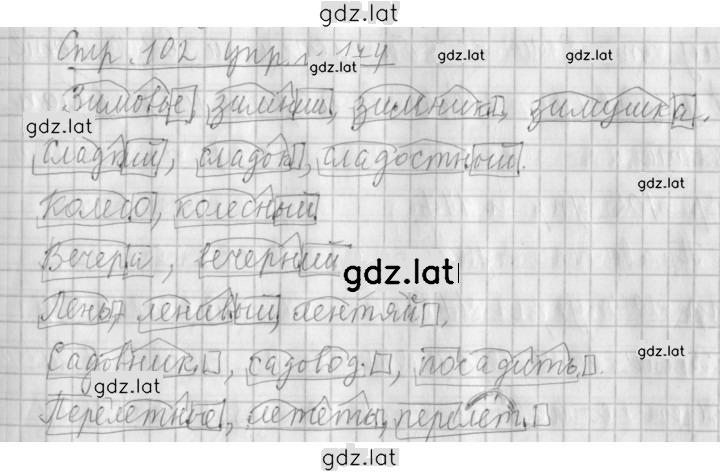 gdz.lat
Стр. 102 упр. 174
gdz.lat gdz.lat gdz.lat
Зимовье, зимний, зимник, зимушка,
gdz.lat
сладкий, сладок, сладостный.
gdz.lat
колесо, колесный
Вечера, вечерний
gdz.lat
Лень, ленивый, лентяй,
Садовник, садовод, посадить.
gdz.lat gdz.lat
Перелетные, лететь, перелет.
gdz.lat